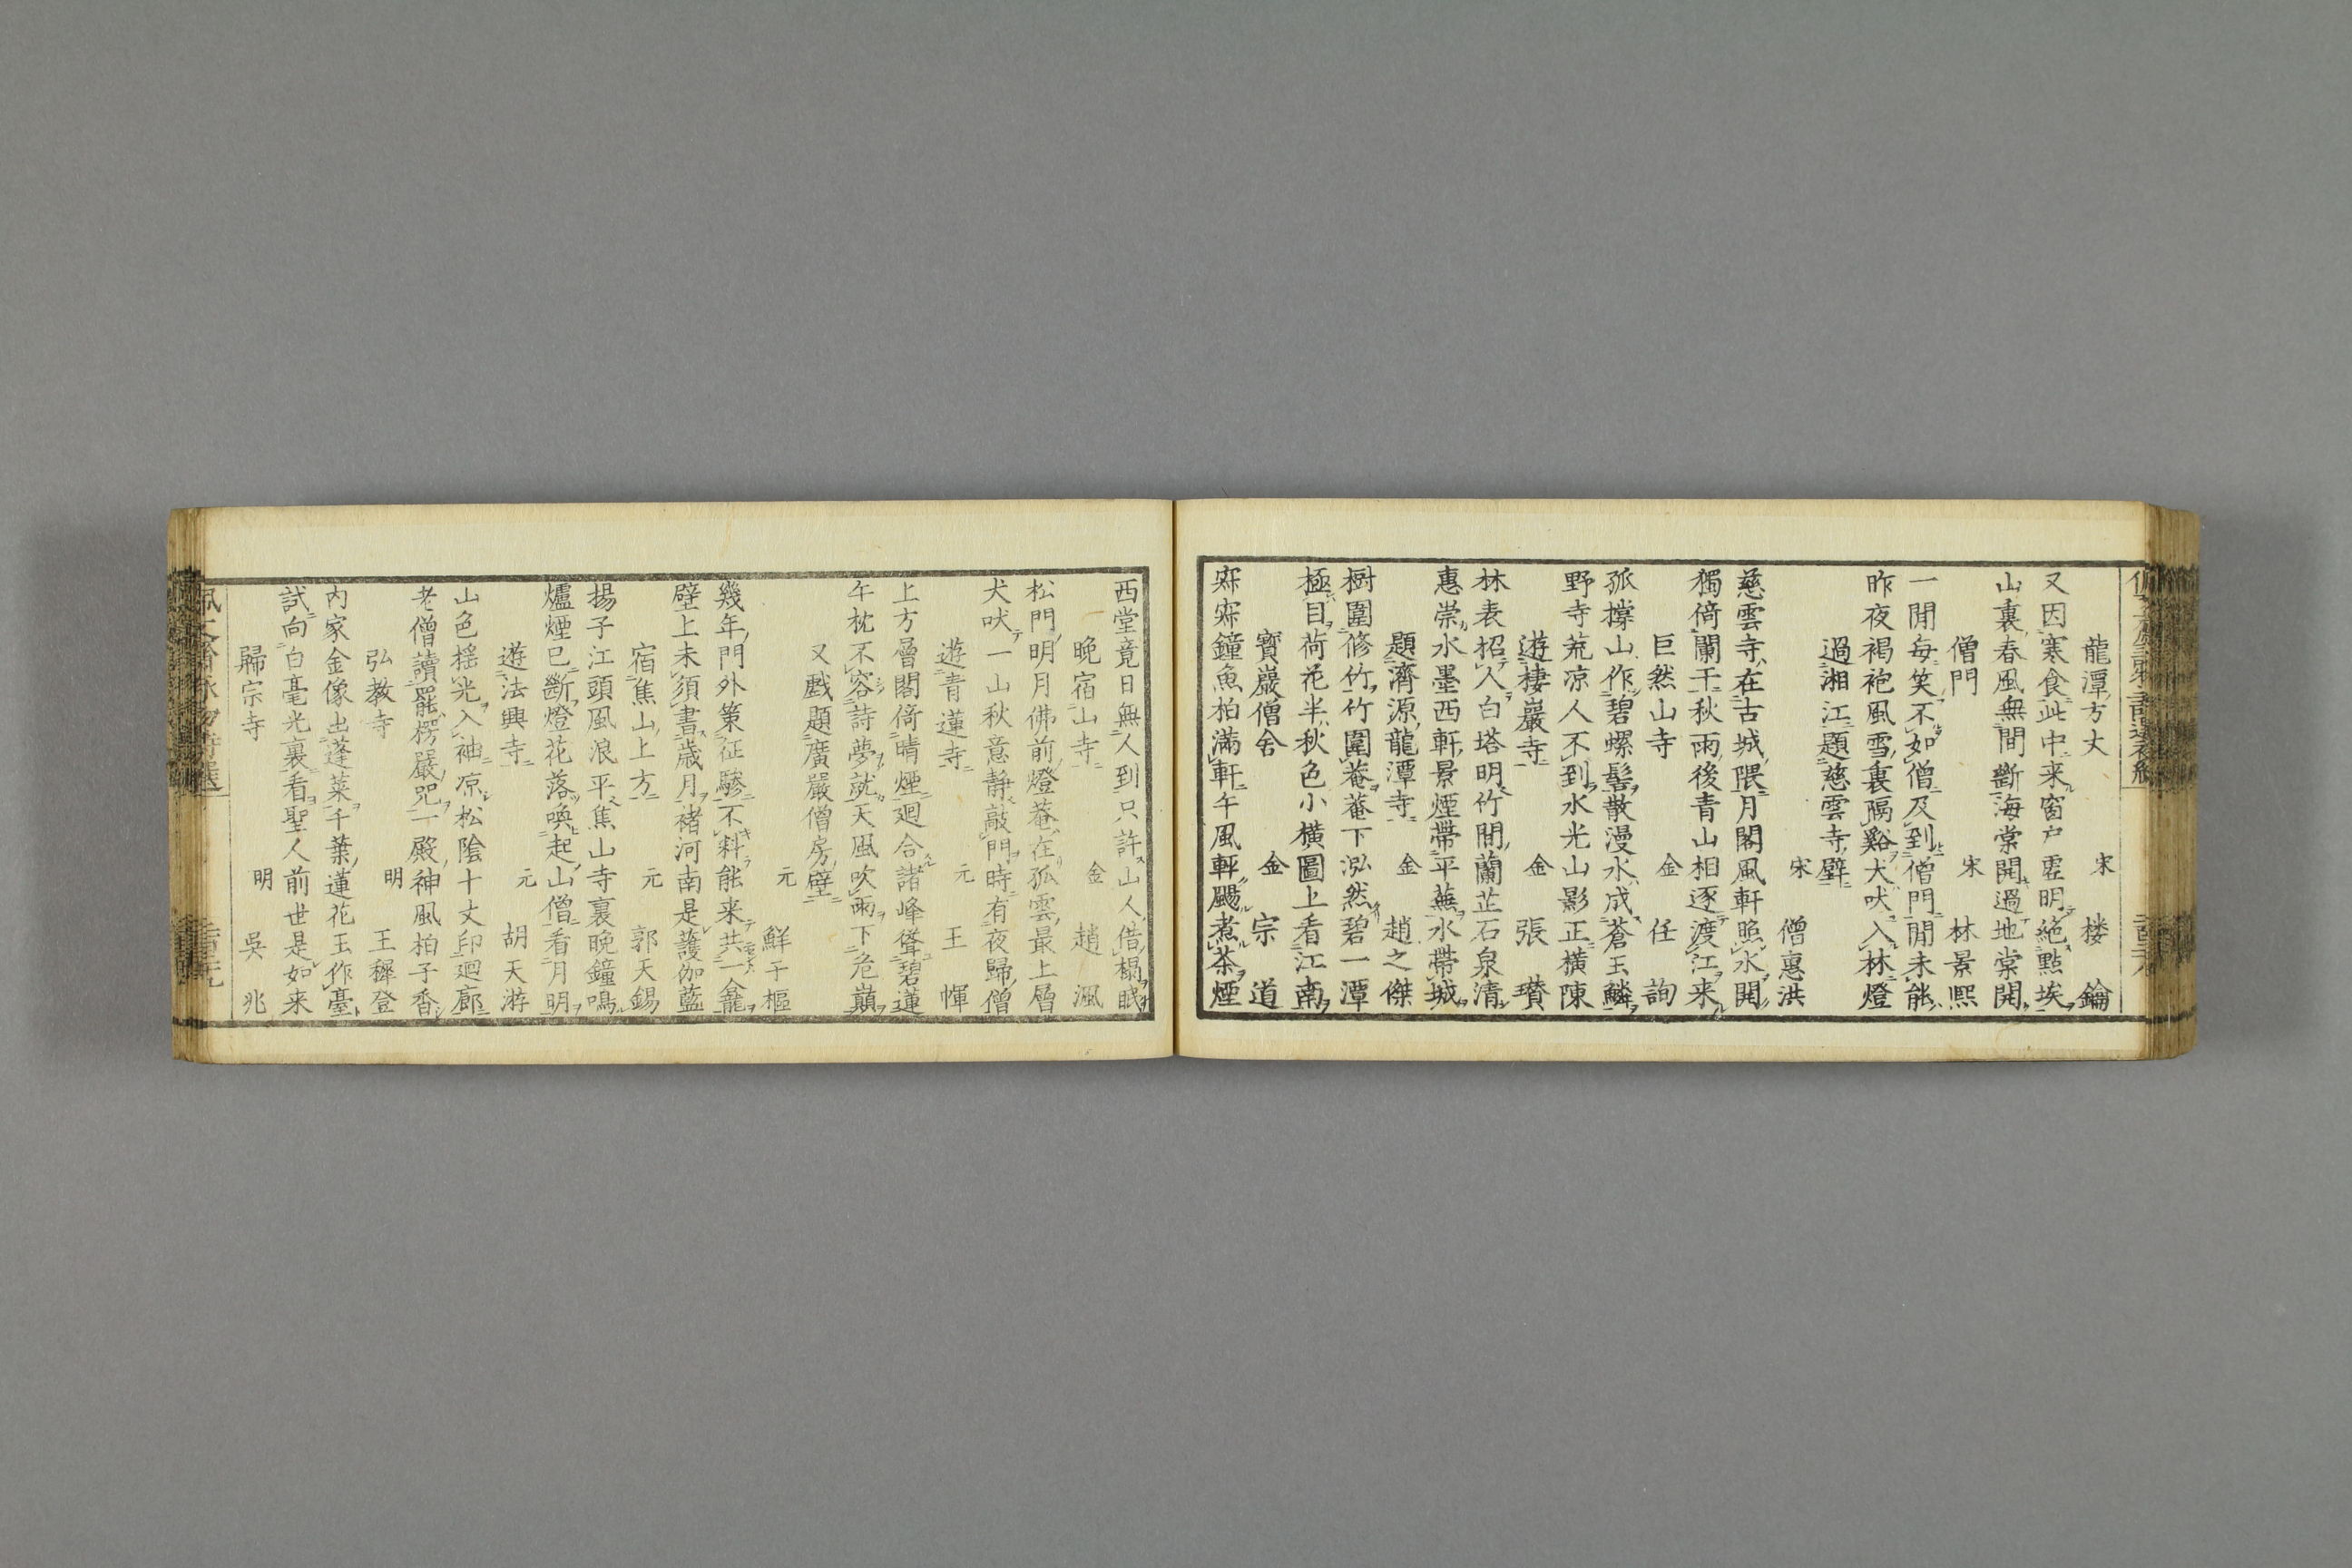 龍潭方丈 宋 楼鑰
又因寒食此中来窗户虚明絶點埃
山裏春風無間斷海棠開過地棠開
僧門 宋 林景熙
一閒每笑不如僧及到僧門閒未能
昨夜褐袍風雪裏隔谿犬吠入林燈
過湘江題慈雲寺壁 宋 僧惠洪
慈雲寺在古城隈月閣風軒照水開
獨倚闌干秋雨後青山相逐渡江来
巨然山寺 金 任詢
孤撐山作碧螺髻散漫水成蒼玉鱗
野寺荒凉人不到水光山影正横陳
遊棲巖寺 金 張瓚
林表招人白塔明竹間蘭芷石泉清
惠崇水墨西軒景煙帶平蕪水帶城
題濟源龍潭寺 金 趙之傑
樹圍修竹竹圍菴菴下泓然碧一潭
極目荷花半秋色小横圖上看江南
寶巖僧舍 金 宗道
寂寂鐘魚柏滿軒午風輕颺煮茶煙
西堂竟日無人到只許山人借榻眠
晚宿山寺 金 趙渢
松門明月佛前燈菴在孤雲最上層
犬吠一山秋意靜敲門時有夜歸僧
遊青蓮寺 元 王惲
上方層閣倚晴煙廻合諸峰聳碧蓮
午枕不容詩夢就天風吹雨下危巔
又戲題廣嚴僧房壁 元 鮮于樞
幾年門外策征驂不料能来共一龕
壁上未須書歳月褚河南是護伽藍
宿焦山上方 元 郭天錫
揚子江頭風浪平焦山寺裏晚鐘鳴
爐煙已斷燈花落喚起山僧看月明
遊法興寺 元 胡天游
山色揺光入袖凉松陰十丈印廻廊
老僧讀罷楞嚴咒一殿神風柏子香
弘教寺 明 王穉登
内家金像出蓬萊千葉蓮花玉作臺
試向白毫光裏看聖人前世是如来
歸宗寺 明 吳兆